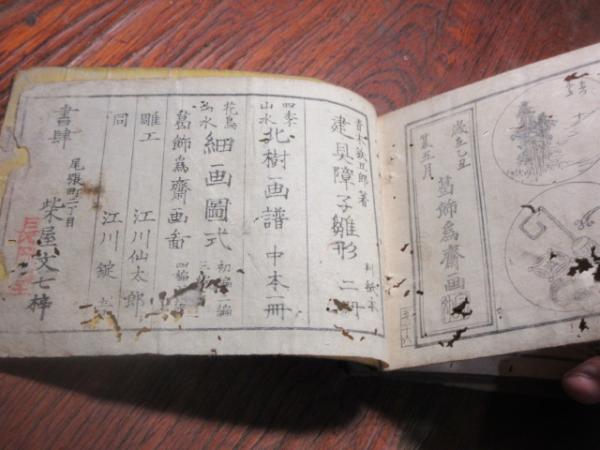 歳在乙丑
夏五月
葛飾為齋画
青木〓四郎著
建具障子雛形 二冊
判紙本
四季
山水
北樹画譜 中本一冊
花鳥
山水
細画圖式 初編二編
葛飾為齋画 四編
雕工 江川仙太郎
同 江川
書肆 尾張町二丁目
柴屋文七梓